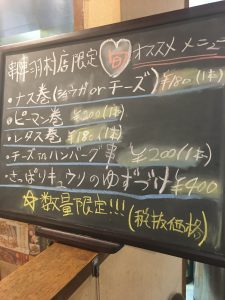 串陣羽村店限定 旬 オススメメニュー
・ナス巻(ショウガorチーズ)¥180(1本)
・ピーマン巻 ¥200(1本)
・レタス巻 ¥180(1本)
・チーズinハンバーグ串 ¥200(1本)
・さっぱりキュウリのゆずづけ¥400
☆数量限定!!! (税抜価格)